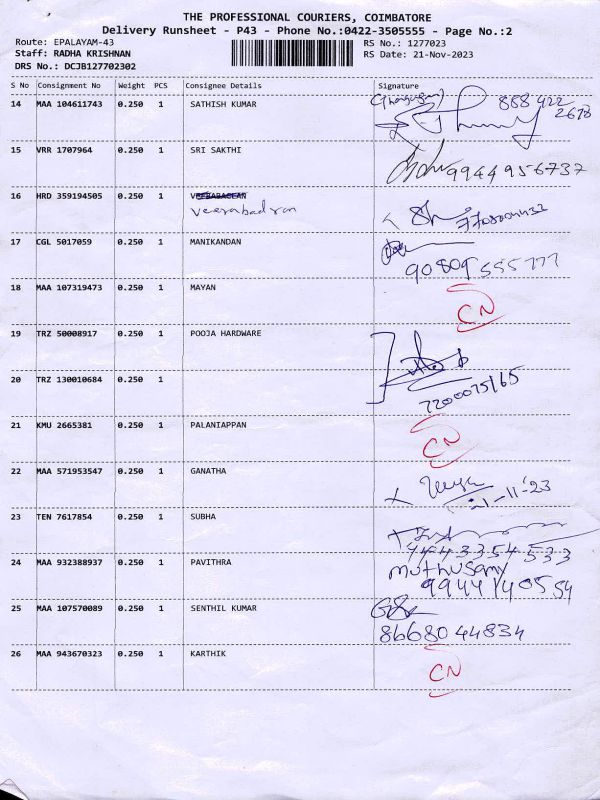 THE PROFESSIONAL COURIERS, COIMBATORE
Delivery Runsheet - P43 - Phone No.:0422-3505555 - Page No.:2
Route: EPALAYAM-43 RS No.: 1277023
Staff: RADHA KRISHNAN RS Date: 21-Nov-2023
DRS No.: DCJB127702302
S No Consignment No Weight PCS Consignee Details Signature
14 MAA 104611743 0.250 1 SATHISH KUMAR 888 422
2678
15 VRR 1707964 0.250 1 SRI SAKTHI 9944956737
16 HRD 359194505 0.250 1
veerabadran
17 CGL 5017059 0.250 1 MANIKANDAN
90809 555 777
18 MAA 107319473 0.250 1 MAYAN CN
19 TRZ 50008917 0.250 1 POOJA HARDWARE
20 TRZ 130010684 0.250 1
7200075165
21 KMU 2665381 0.250 1 PALANIAPPAN CN
22 MAA 571953547 0.250 1 GANATHA
21-11-'23
23 TEN 7617854 0.250 1 SUBHA
9443354533
24 MAA 932388937 0.250 1 PAVITHRA muthusamy
9944140554
25 MAA 107570089 0.250 1 SENTHIL KUMAR
8668044834
26 MAA 943670323 0.250 1 KARTHIK CN